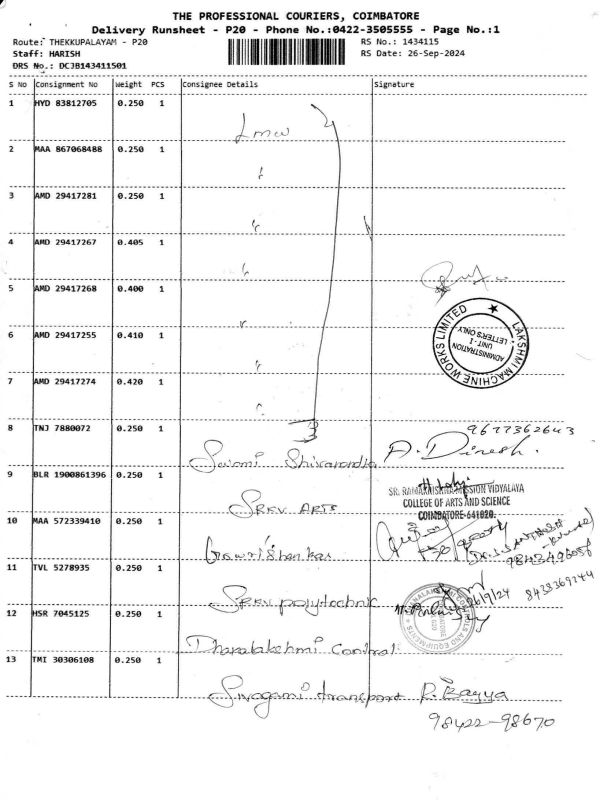 THE PROFESSIONAL COURIERS, COIMBATORE
Delivery Runsheet - P20 - Phone No.:0422-3505555 - Page No.:1
Route: THEKKUPALAYAM - P20 RS No.: 1434115
Staff: HARISH RS Date: 26-Sep-2024
DRS No.: DCJB143411501
S No Consignment No Weight PCS Consignee Details Signature
1 HYD 83812705 0.250 1 Lmw
2 MAA 867068488 0.250 1
3 AMD 29417281 0.250 1
4 AMD 29417267 0.405 1
5 AMD 29417268 0.400 1
6 AMD 29417255 0.410 1
LAKSHMI MACHINE WORKS LIMITED
ADMINISTRATION
UNIT-I
LETTER'S ONLY
7 AMD 29417274 0.420 1
8 TNJ 7880072 0.250 1 Swami Shivananda A. Dinesh. 9677362643
9 BLR 1900861396 0.250 1 SRKV ARTS
SR. RAMAKRISHNA MISSION VIDYALAYA
COLLEGE OF ARTS AND SCIENCE
COIMBATORE-641020.
10 MAA 572339410 0.250 1 Gowrishankar
9843496058
11 TVL 5278935 0.250 1 SRKV polytechnic
26/9/24 8438369244
12 HSR 7045125 0.250 1 Dhanalakshmi Control
13 TMI 30306108 0.250 1 Sivagami transport R. Bagya
98422-98670